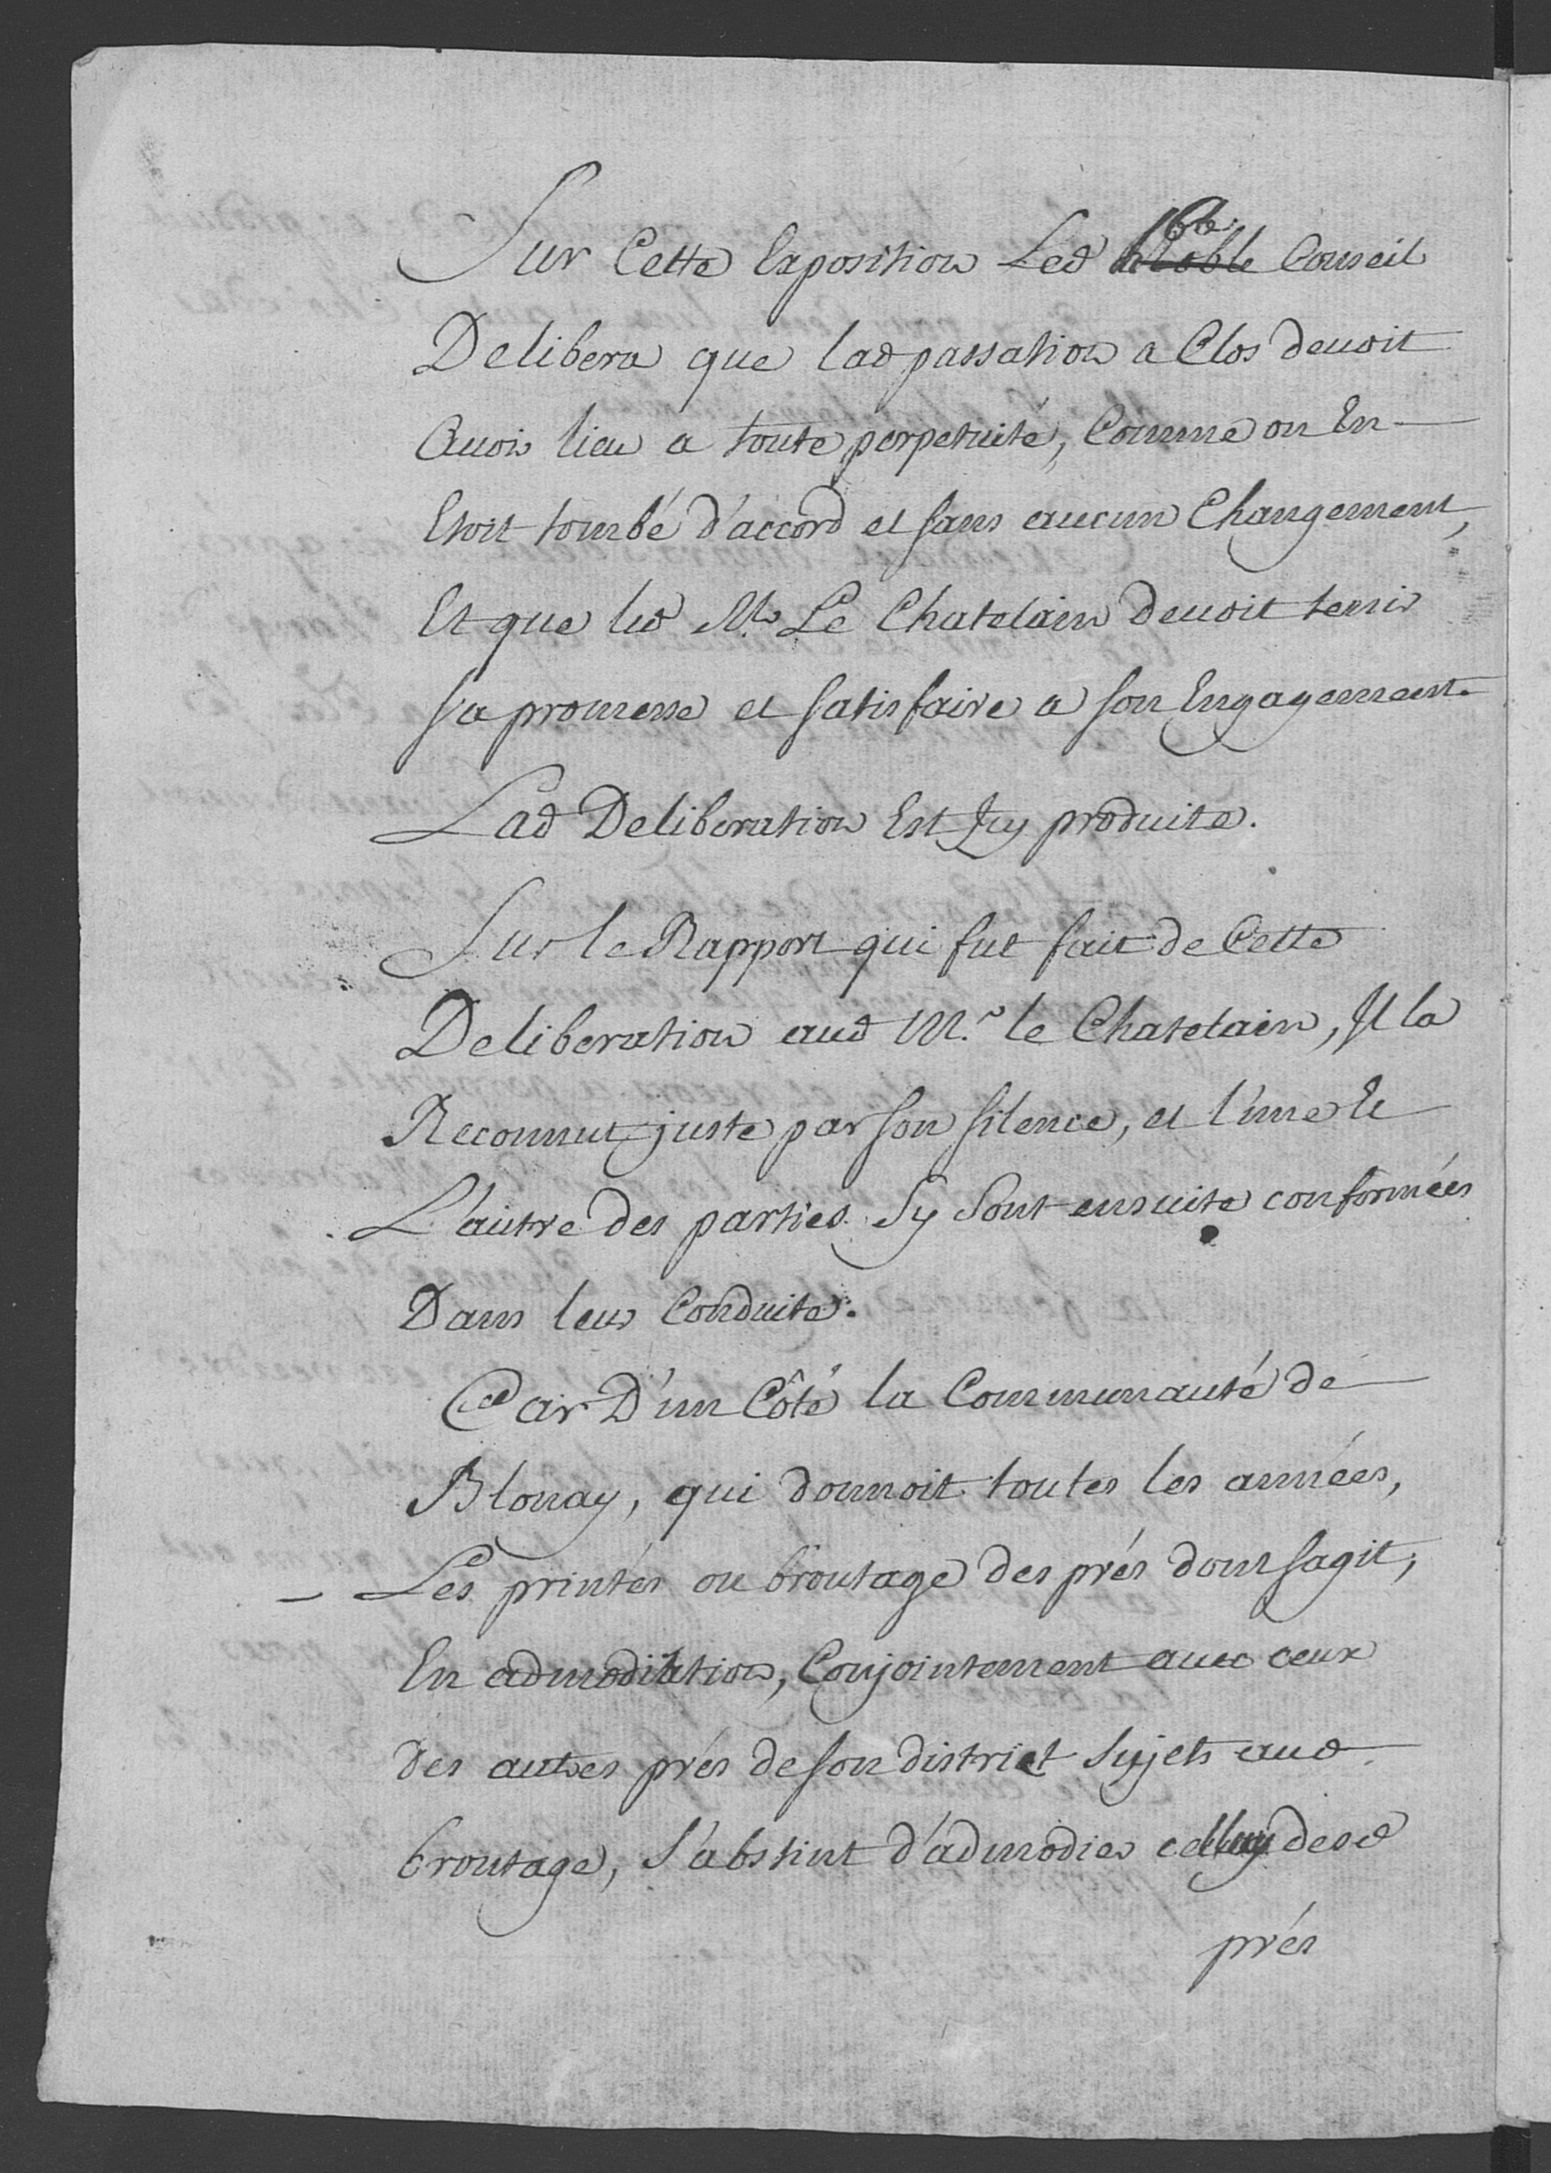 Sur Cette Exposition Led Noble Conseil
Delibera que lad passation a Clos devoit
Avoir lieu a toute perpetuité, Comme on En
Etoit tombé d'accord et sans aucun Changement,
Et que led Mr Le Chatelain devoit tenir
sa promesse et satisfaire a son Engagement.
Lad Deliberation Est Icy produite.
Sur le Rapport qui fut fait de Cette
Deliberation aud Mr. le Chatelain, Il la
Reconnut juste par son silence, et l'une Et
L'autre des parties Sy Sont ensuite conformées
Dans leur Conduite.
Car D'un Côté la Communauté de
Blonay, qui donnoit toutes les années,
Les printés ou broutage des prés dont sagit,
En admodiation, Conjointement avec ceux
des autres prés de son district Sujets aud
broutage, s'abstint d'admodier celluy desd
prés